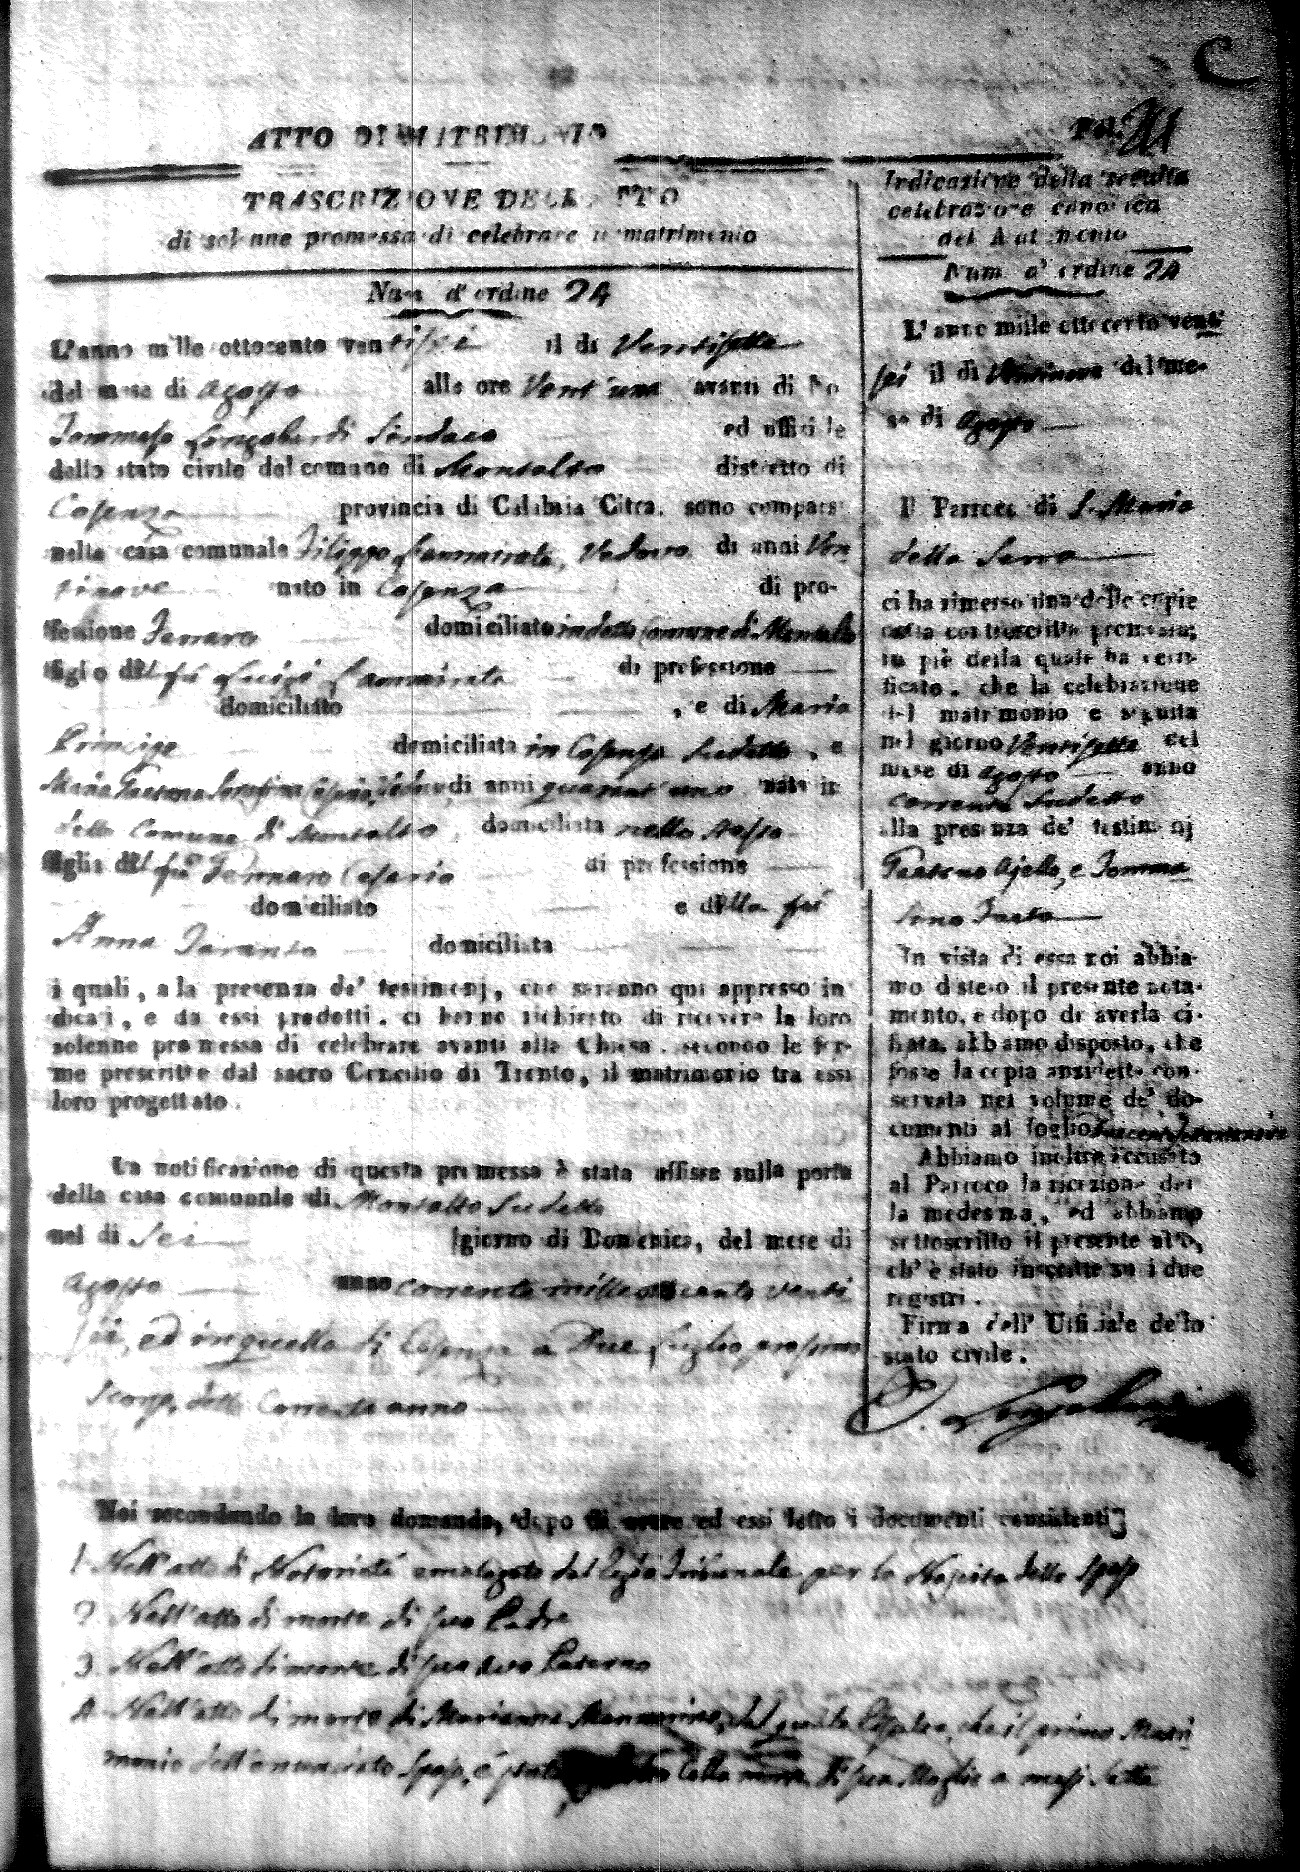 C
ATTO DI MATRIMONIO
Fol.
TRASCRIZIONE DELL'ATTO
di solenne promessa di celebrare il matrimonio
Num d'ordine 24
L'anno mille ottocento ventisei il di Ventisette
del mese di Agosto alle ore Vent'una avanti di Noi
Tommaso Longobardi Sindaco ed ufficiale
dello stato civile del comune di Montalto distretto di
Cosenza provincia di Calabria Citra, sono comparsi
nella casa comunale Filippo Sammirata, Vedovo di anni Ven
tinove nato in Cosenza di pro-
fessione Ferraro domiciliato in detto Comune di Montalto
figlio del fù Luigi Sammirata di professione
domiciliato , e di Maria
Principe domiciliata in Cosenza sudetta , e
Maria Gaetana Serafina Cesario, Vedova di anni quarant'uno nata in
detto Comune di Montalto, domiciliata nello stesso
figlia del fù Gennaro Cesario di professione
domiciliato e della fù
Anna Taranto domiciliata
i quali, alla presenza de' testimonj, che saranno qui appresso in
dicati, e da essi prodotti, ci hanno richiesto di ricevere la loro
solenne promessa di celebrare avanti alla Chiesa, secondo le for-
me prescritte dal sacro Concilio di Trento, il matrimonio tra essi
loro progettato.
La notificazione di questa promessa è stata affissa sulla porta
della casa comunale di Montalto sudetto
nel di Sei giorno di Domenica, del mese di
Agosto anno corrente mille ottocento venti
sei, ed in quella di Cosenza a Due Luglio prossimo
scorso, dello Corrente anno
Indicazione della seguita
celebrazione canonica
del Matrimonio
Num d'ordine 24
L'anno mille ottocento venti
sei il di Ventinove del me-
se di Agosto
Il Parroco di S. Maria
della Serra
ci ha rimesso una delle copie
della controscritta promessa;
in piè della quale ha certi-
ficato, che la celebrazione
del matrimonio è seguita
nel giorno Ventisette del
mese di Agosto anno
corrente sudetto
alla presenza de' testimonj
Gaetano Ajello, e Tomma
sino
In vista di essa noi abbia-
mo disteso il presente nota-
mento, e dopo di averla ci-
frata, abbiamo disposto, che
fosse la copia anzidetta con-
servata nel volume de' do-
cumenti al foglio
Abbiamo inoltre accusato
al Parroco la ricezione del
la medesma, ed abbiamo
sottoscritto il presente atto,
ch' è stato inscritto su i due
registri.
Firma dell' Uffiziale dello
stato civile.
Noi secondando la loro domanda, dopo di avere ed essi letto i documenti consistenti
1 Nell'atto di Notorietà omologato dal Regio Tribunale per la Nascita dello Sposo
2 Nell'atto di morte di suo Padre
3 Nell'atto di morte di suo Avo Paterno
4 Nell'atto di morte di Marianna Mannarino, dal quale che il primo Matri
monio dell'enunciato Sposo, è stato colla morte di sua Moglie a